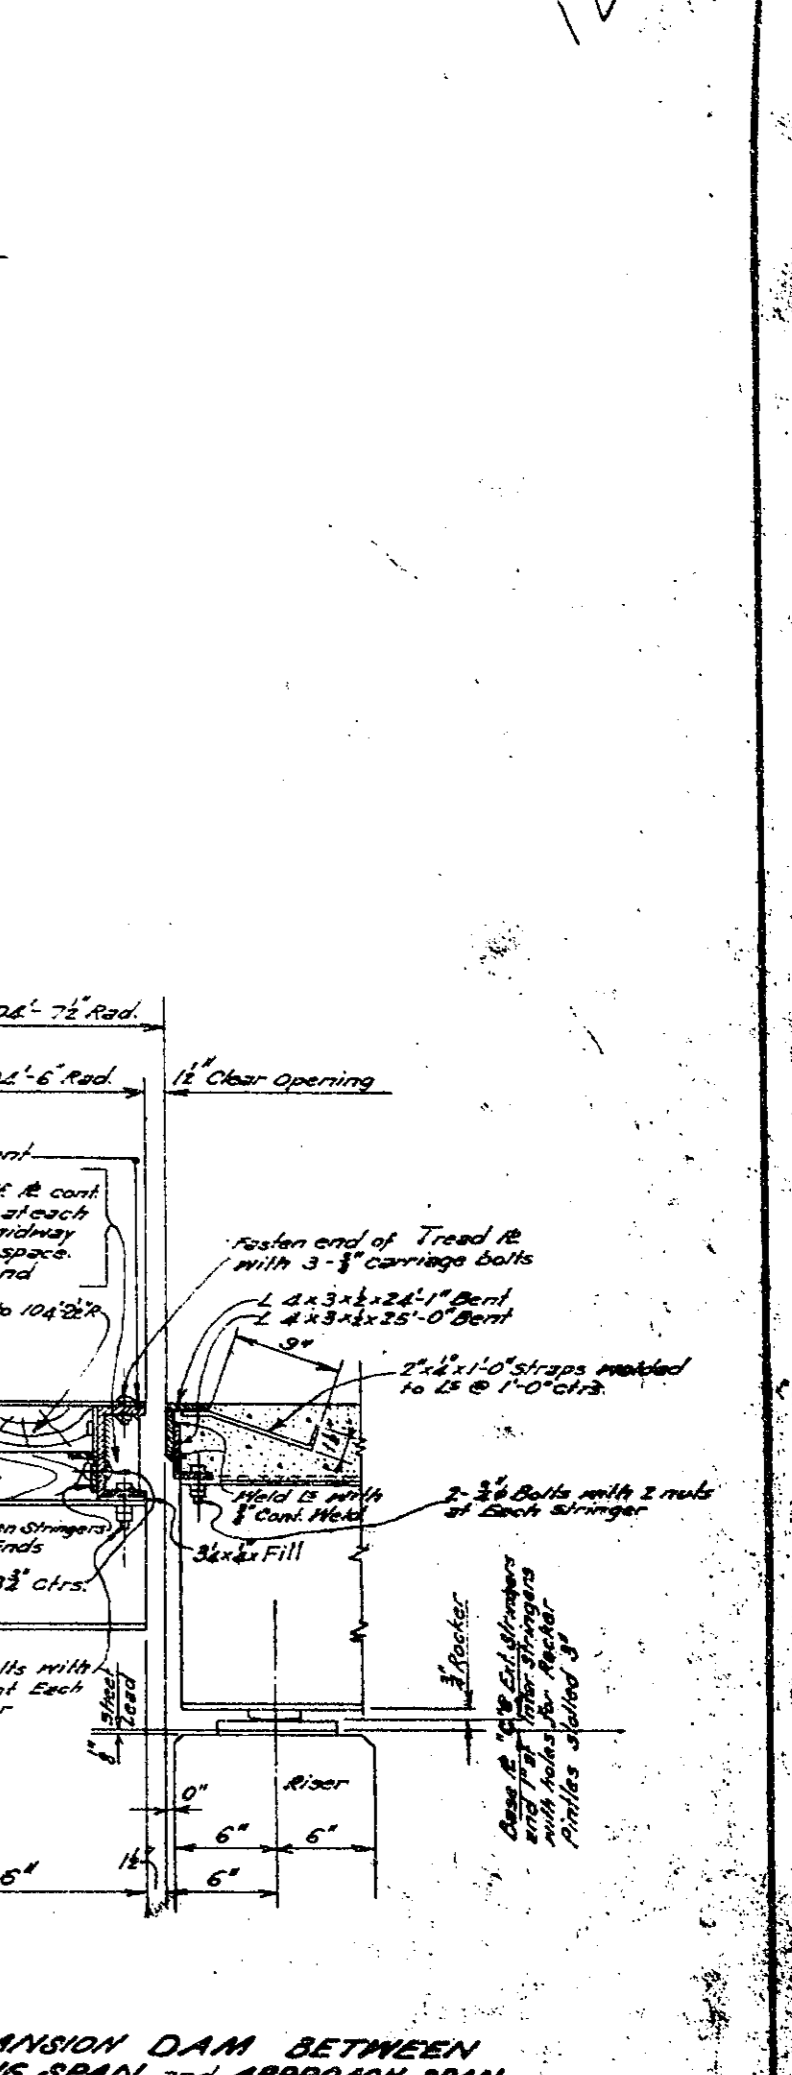 04'- 7½" Rad.
4'-6" Rad.
1½" Clear Opening
ent
℄ cont.
at each
midway
space.
nd
to 104'2½"R
Fasten end of Tread ℄
with 3-⅜" carriage bolts
L 4x3x½x24'-1" Bent
L 4x3x½x25'-0" Bent
9"
2"x¼"x1'-0" Straps welded
to Ls @ 1'-0" ctrs.
1½"
Weld Ls with
⅜" Cont. Weld
2-¾"ø Bolts with 2 nuts
at Each Stringer
en Stringers
Ends
3¼x¼x Fill
3¾" Ctrs.
lts with
at Each
r
⅛" Sheet
Lead
¾" Rocker
Ext. Stringers
and 1" at Inter Stringers
with holes for Rocker
Pintles Slotted 3"
Riser
0"
6" 6"
6"
1½"
6"
ANSION DAM BETWEEN
SPAN and APPROACH SPAN